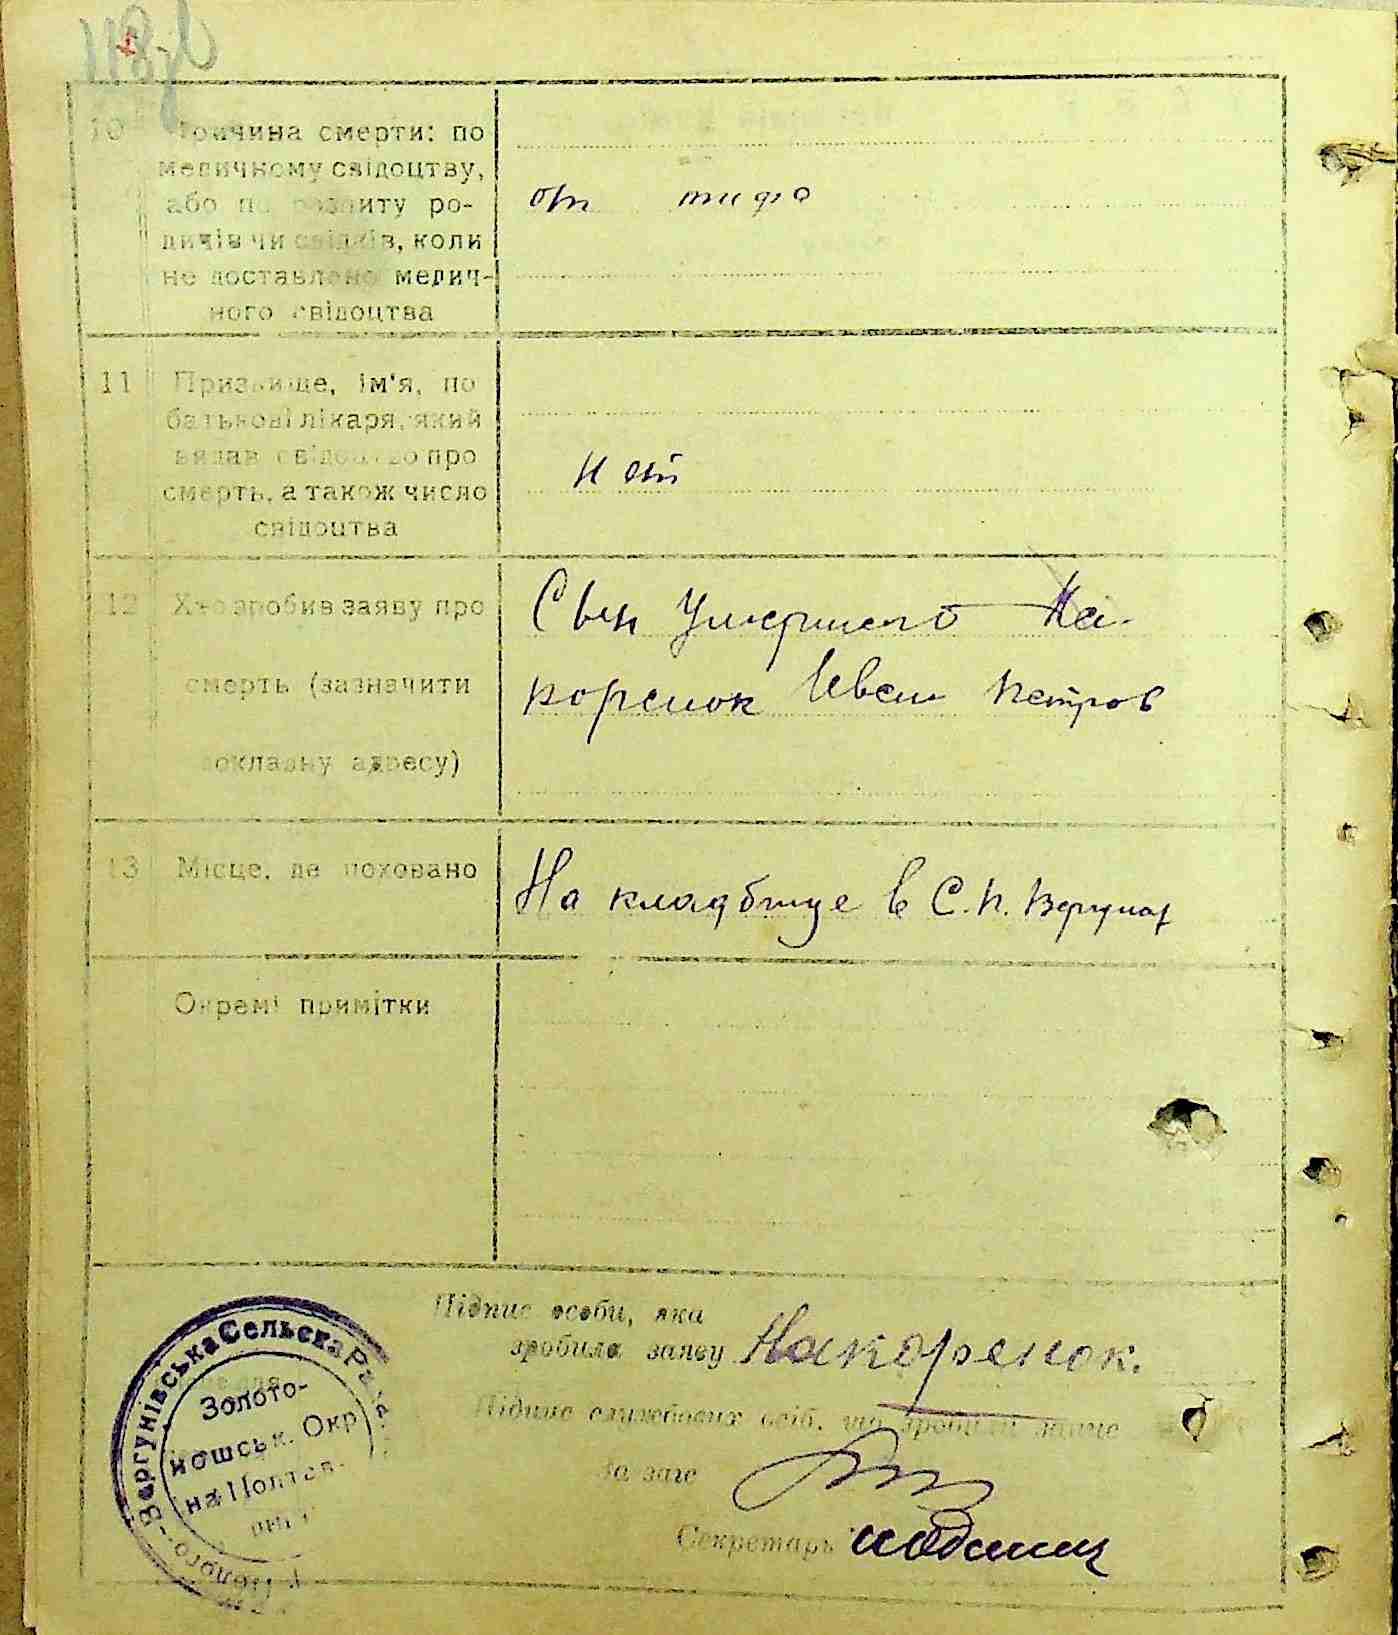 10 Причина смерти: по
медичному свідоцтву,
або по розпиту ро-
дичів чи свідків, коли
не доставлено медич-
ного свідоцтва
от тифа
11 Призвище, ім'я, по
батькові лікаря, який
видав свідоцтво про
смерть, а також число
свідоцтва
нет
12 Хто зробив заяву про
смерть (зазначити
докладну адресу)
Сын Умершего На-
коренок Иван Петров
13 Місце, де поховано
На кладбище в С. П.
Окремі примітки
Підпис особи, яка
зробила заяву Накоренок.
Підпис службових осіб, що зробили запис
За загс
Секретарь
Вергунівська Сельска Рада
Золото-
ношськ. Окр
на Полтав-